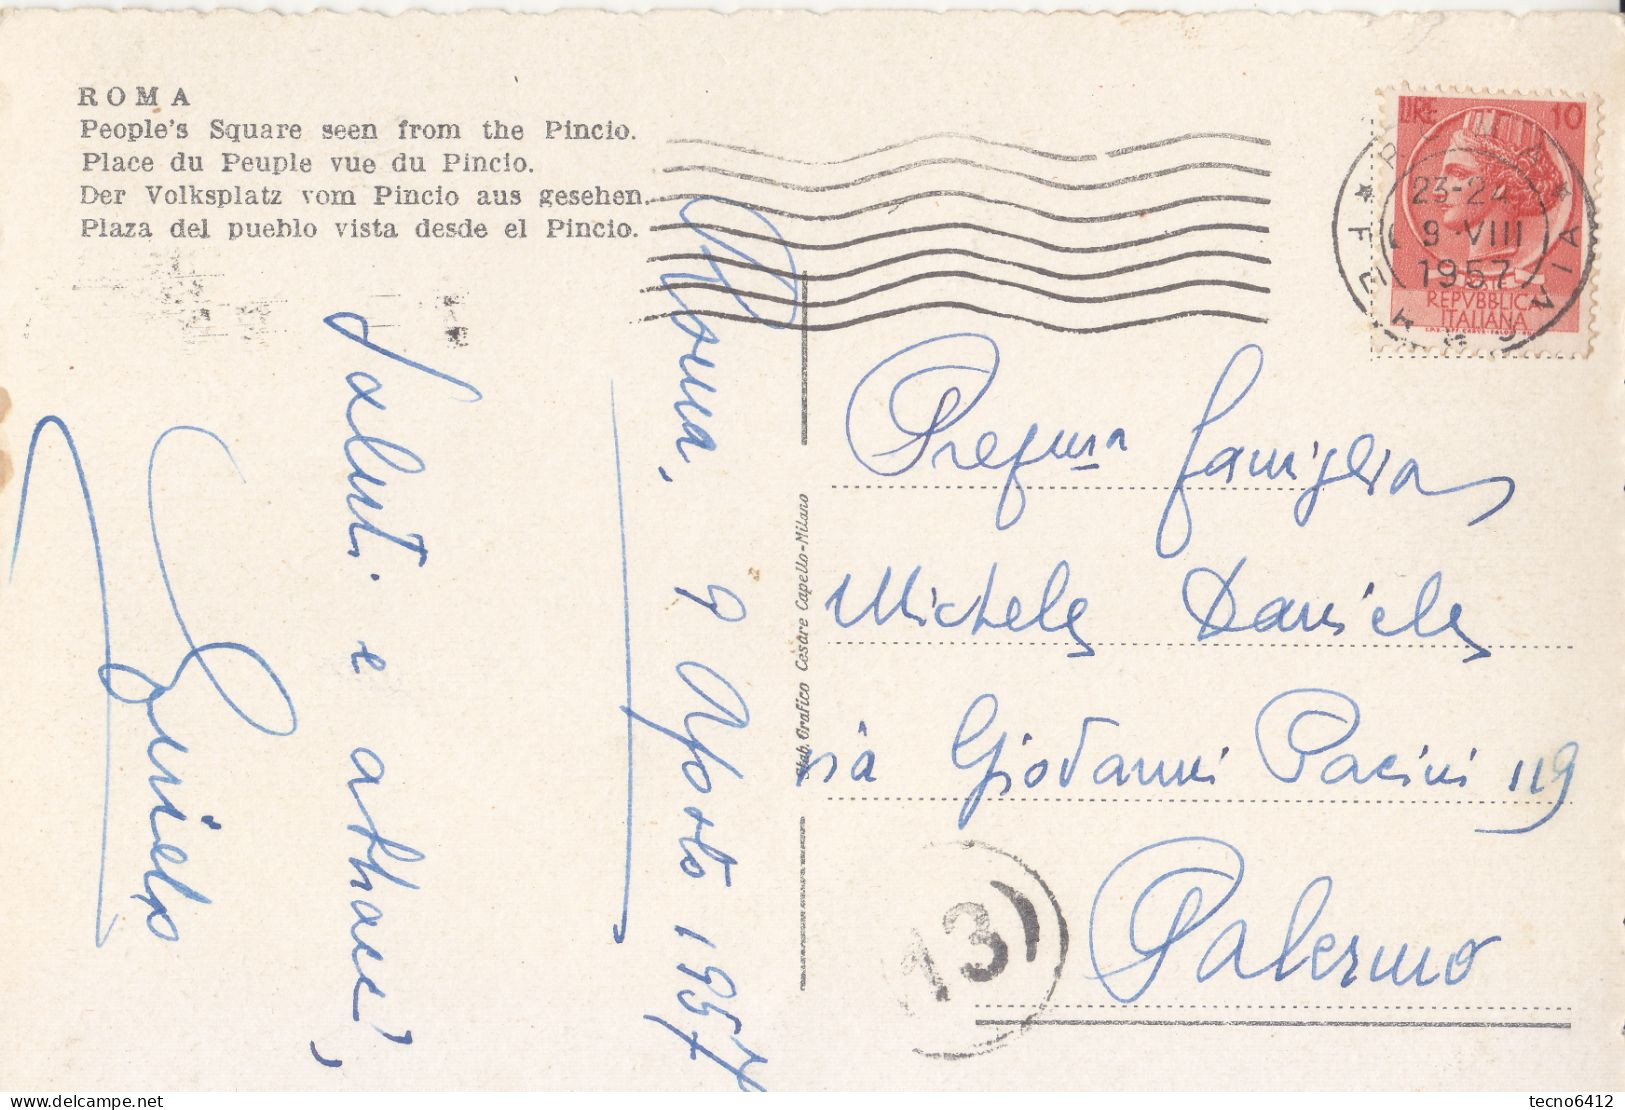 ROMA
People's Square seen from the Pincio.
Place du Peuple vue du Pincio.
Der Volksplatz vom Pincio aus gesehen.
Plaza del pueblo vista desde el Pincio.
LIRE 10
POSTE
REPVBBLICA
ITALIANA
ROMA
FERROVIA
23-24
9 VIII
1957
Roma, 9 Agosto 1957
Saluti e abbracci,
Stab. Grafico Cesare Capello-Milano
Famiglia
Michele Daniele
via Giovanni Pacini 119
Palermo
13
tecno6412